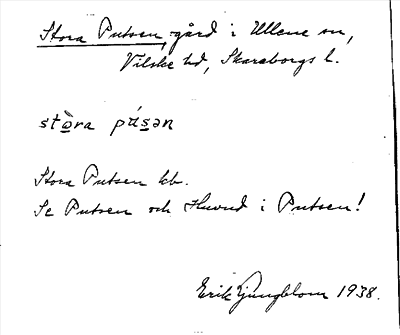 Stora Putsen, gård i Ullene sn,
Vilske hd, Skaraborgs l.
stòra púsən
Stora Putsen kb.
Se Putsen och Huvud i Putsen!
Erik Ljungblom 1938.